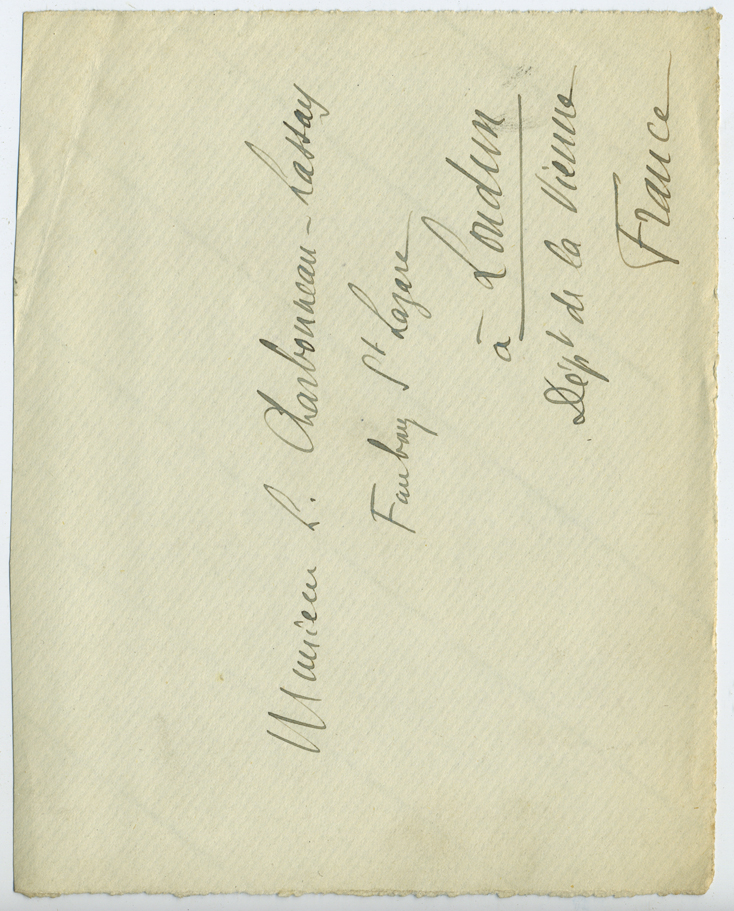 Monsieur L. Charbonneau-Lassay
Faubourg St Lazare
à Loudun
Dépt de la Vienne
France